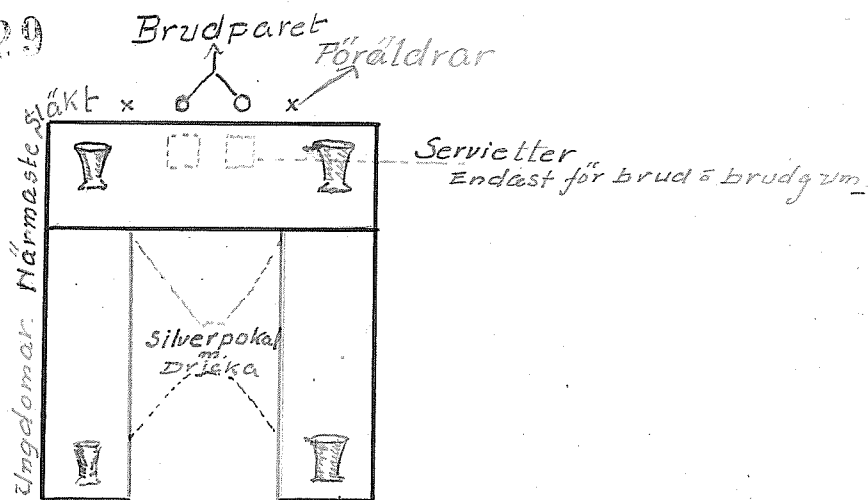 29
Brudparet
Föräldrar
Närmaste släkt
Servietter
Endast för brud o brudgum
Silverpokal
m.
Dricka
Ungdomar.